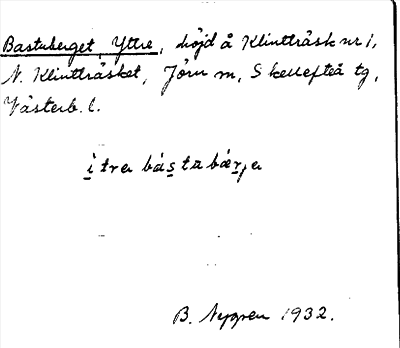 Bastuberget, Yttre, höjd å Klintträsk nr 1,
N. Klintträsket, Jörn sn, Skellefteå tg,
Västerb. l.
ìtrə bástabærjə
B. Nygren 1932.